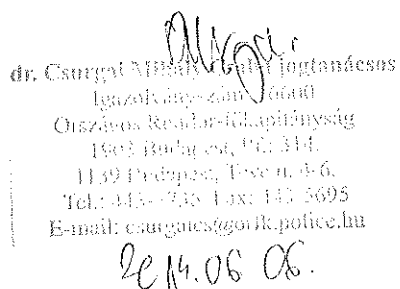 dr. Csurgai Mihály jogtanácsos
Igazolványszám:
Országos Rendőr-főkapitányság
1903 Budapest, Pf.: 314.
1139 Budapest, Teve u. 4-6.
Tel.: 443- Fax: 443-5695
E-mail: csurgaics@orfk.police.hu
2014.06 06.